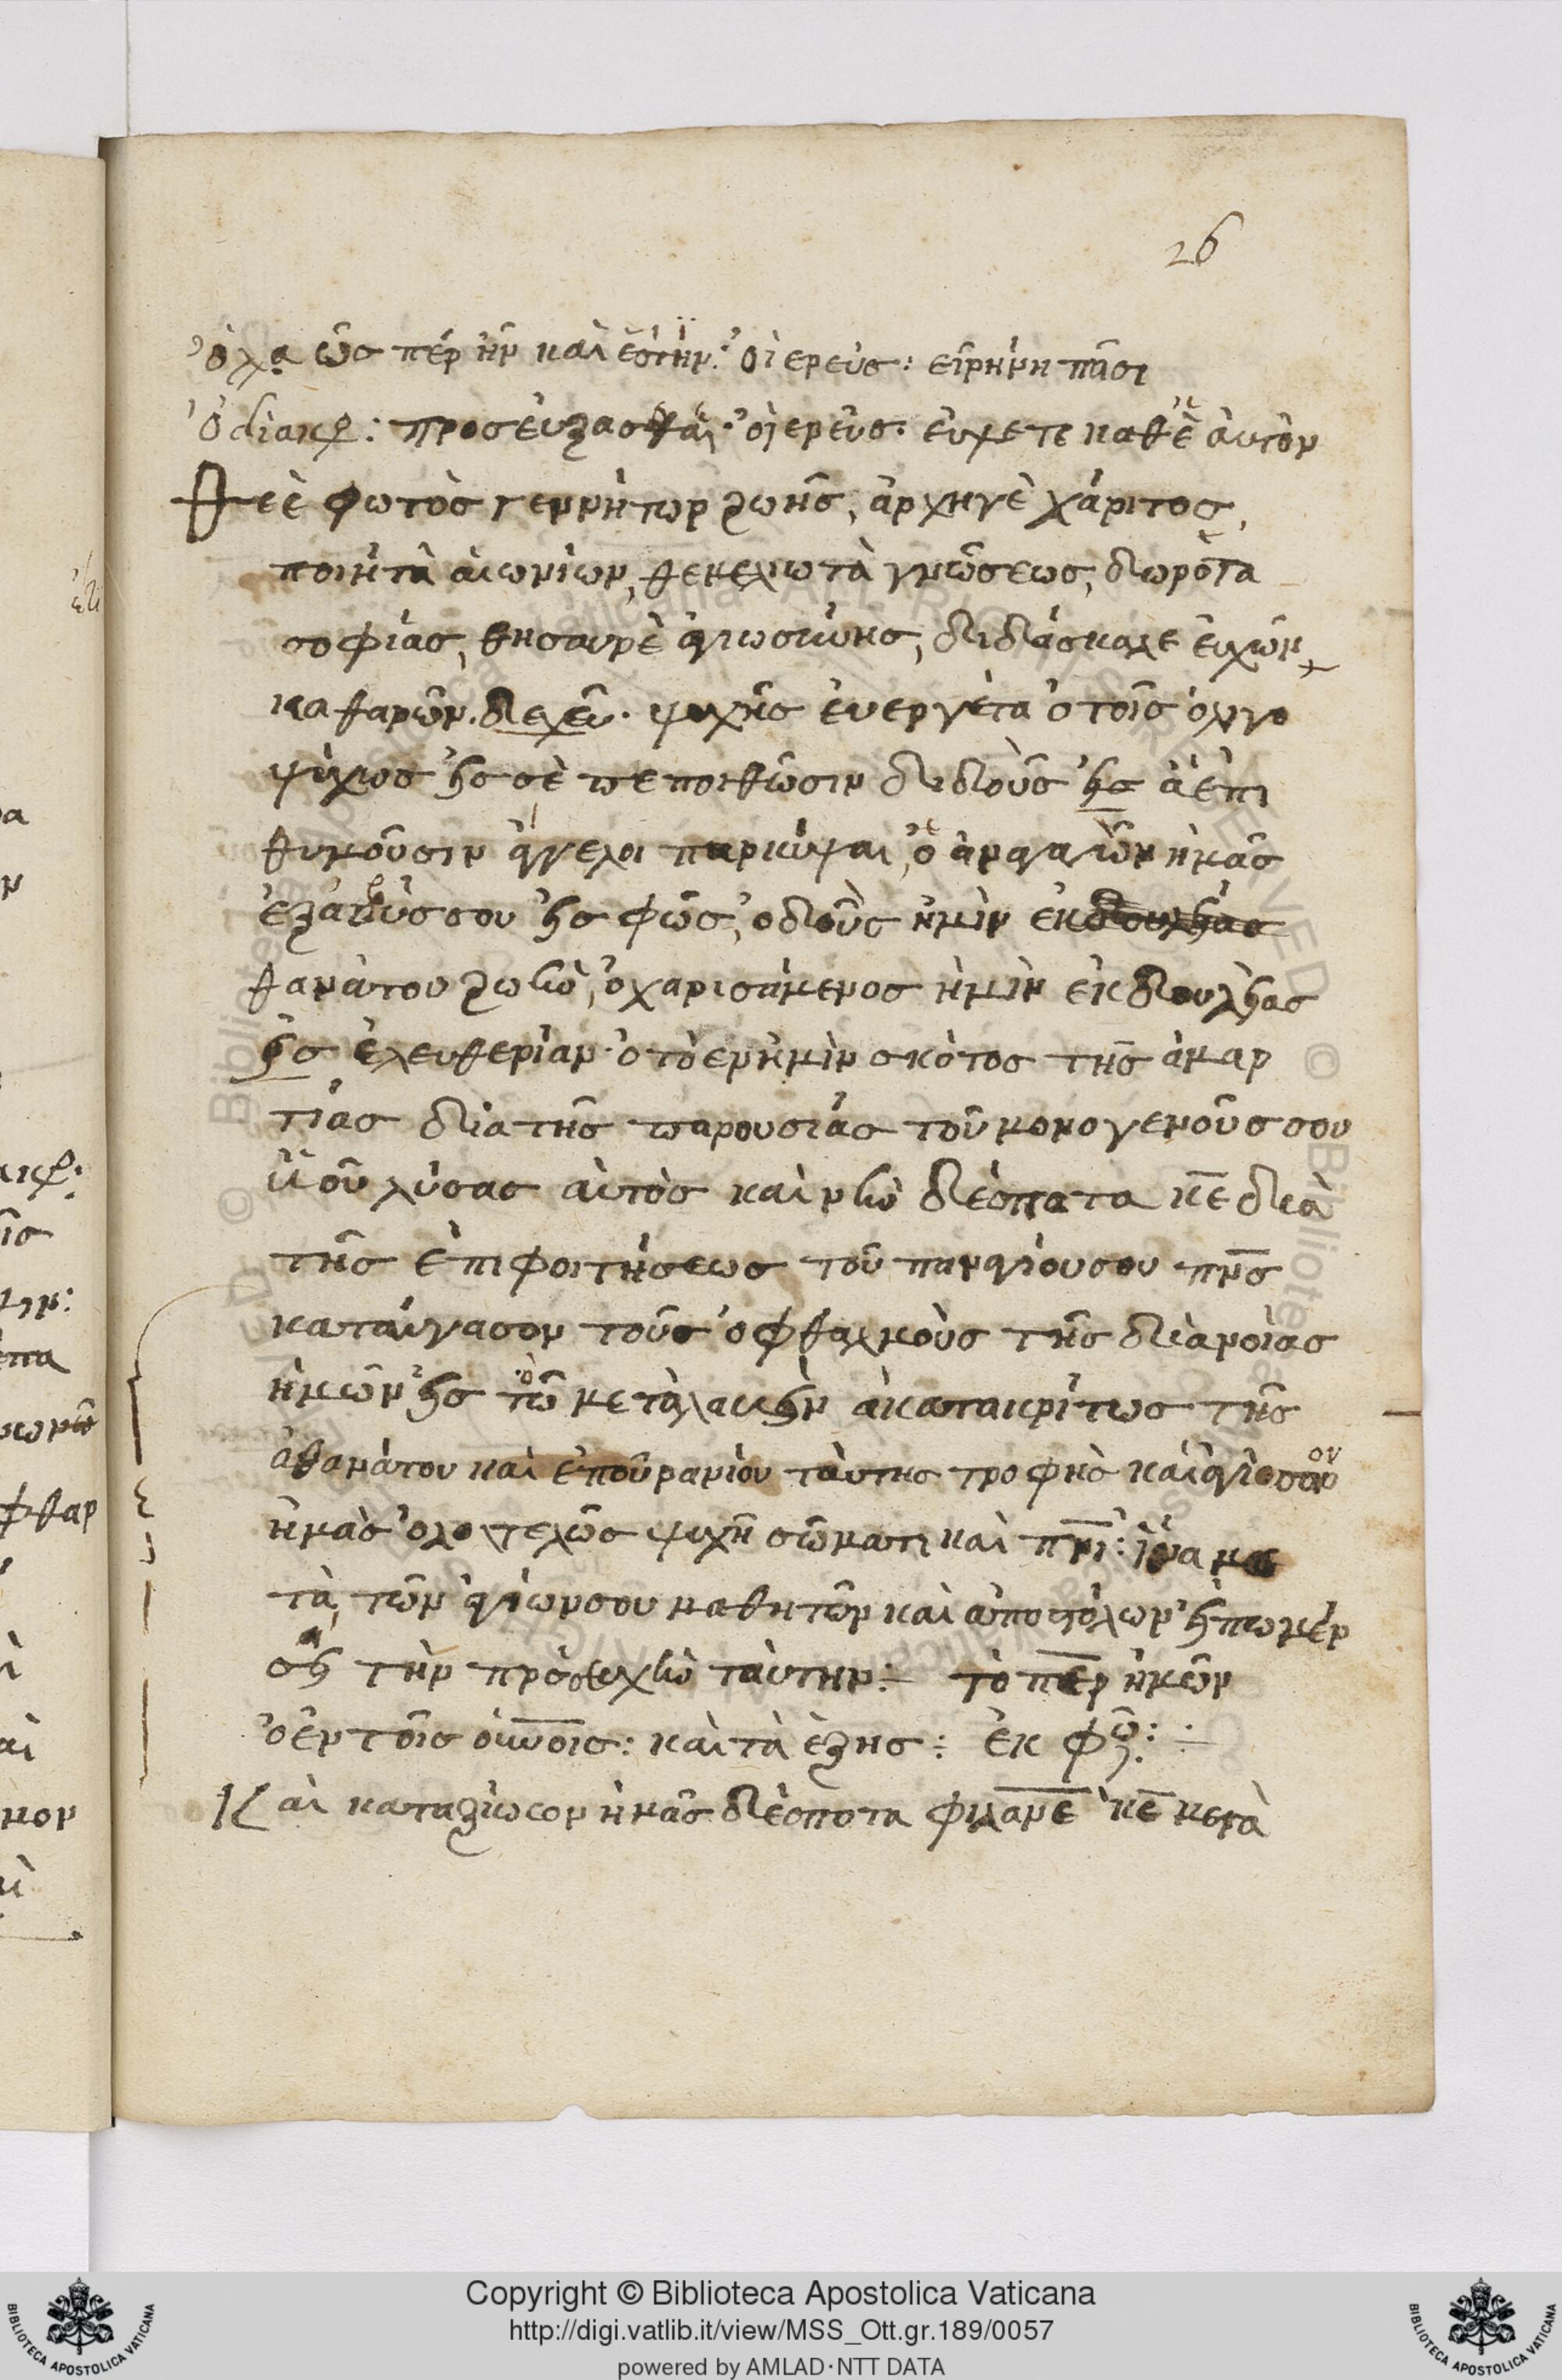 26
ὁ λα ὥς περ ἦν καὶ ἐστὴν: ὁ ἱερεὺς: εἰρήνη πᾶσι
Ὁ διακ: προσεύξασθαι· ὁ ἱερεὺς· εὐχετε καθ ἑαυτὸν
Θεὲ φωτὸς γεννήτωρ ζωῆς, ἀρχηγὲ χάριτος,
ποιητὰ αἰωνίων, θεμελιωτὰ γνώσεως, δωρότα
σοφίας, θησαυρὲ ἁγιωσύνης, διδάσκαλε εὐχῶν
καθαρῶν. ψυχῆς ἐυεργέτα ὁ τοῖς ὀλιγο
ψύχως εἰς σὲ πεποιθῶσιν διδοὺς εἰς ἃ ἐπι
θυμοῦσιν ἄγγελοι παρακύψαι, ὁ ἀναγαγὼν ἡμᾶς
ἐξ ἀβύσσου εἰς φῶς, ὁ δοὺς ἡμῖν ἐκ δουλείας
θανάτου ζωὴν, ὁ χαρισάμενος ἡμῖν ἐκ δουλείας
εἰς ἐλευθερίαν· ὁ τὸ ἐν ἡμῖν σκότος τῆς ἁμαρ
τίας διὰ τῆς παρουσίας τοῦ μονογενοῦς σου
ὑιοῦ λύσας αὐτὸς καὶ νῦν δέσπατα κε διὰ
τῆς ἐπιφοιτήσεως τοῦ παναγίου σου πνς
καταύγασον τοὺς ὀφθαλμοὺς τῆς διανοίας
ἡμῶν εἰς τὼ μεταλαβεῖν ἀκατακρίτως τῆς
ἀθανάτου καὶ ἐπουρανίου ταύτης τροφῆς καὶ ἁγίασον
ἡμᾶς ὁλοτελῶς ψυχῆ σώματι καὶ πνι: ἵνα με
τὰ τῶν ἁγίων σου μαθητῶν καὶ ἀποστόλων εἴπωμέν
σοι τὴν προσευχὴν ταύτην: τὸ περ ἡμῶν
ὁ ἐν τοῖς οὐνοις: καὶ τὰ ἑξῆς: ἐκ φω:
Καὶ καταξίωσον ἡμᾶς δέσποτα φιλανε κε μετὰ
Copyright © Biblioteca Apostolica Vaticana
http://digi.vatlib.it/view/MSS_Ott.gr.189/0057
powered by AMLAD·NTT DATA